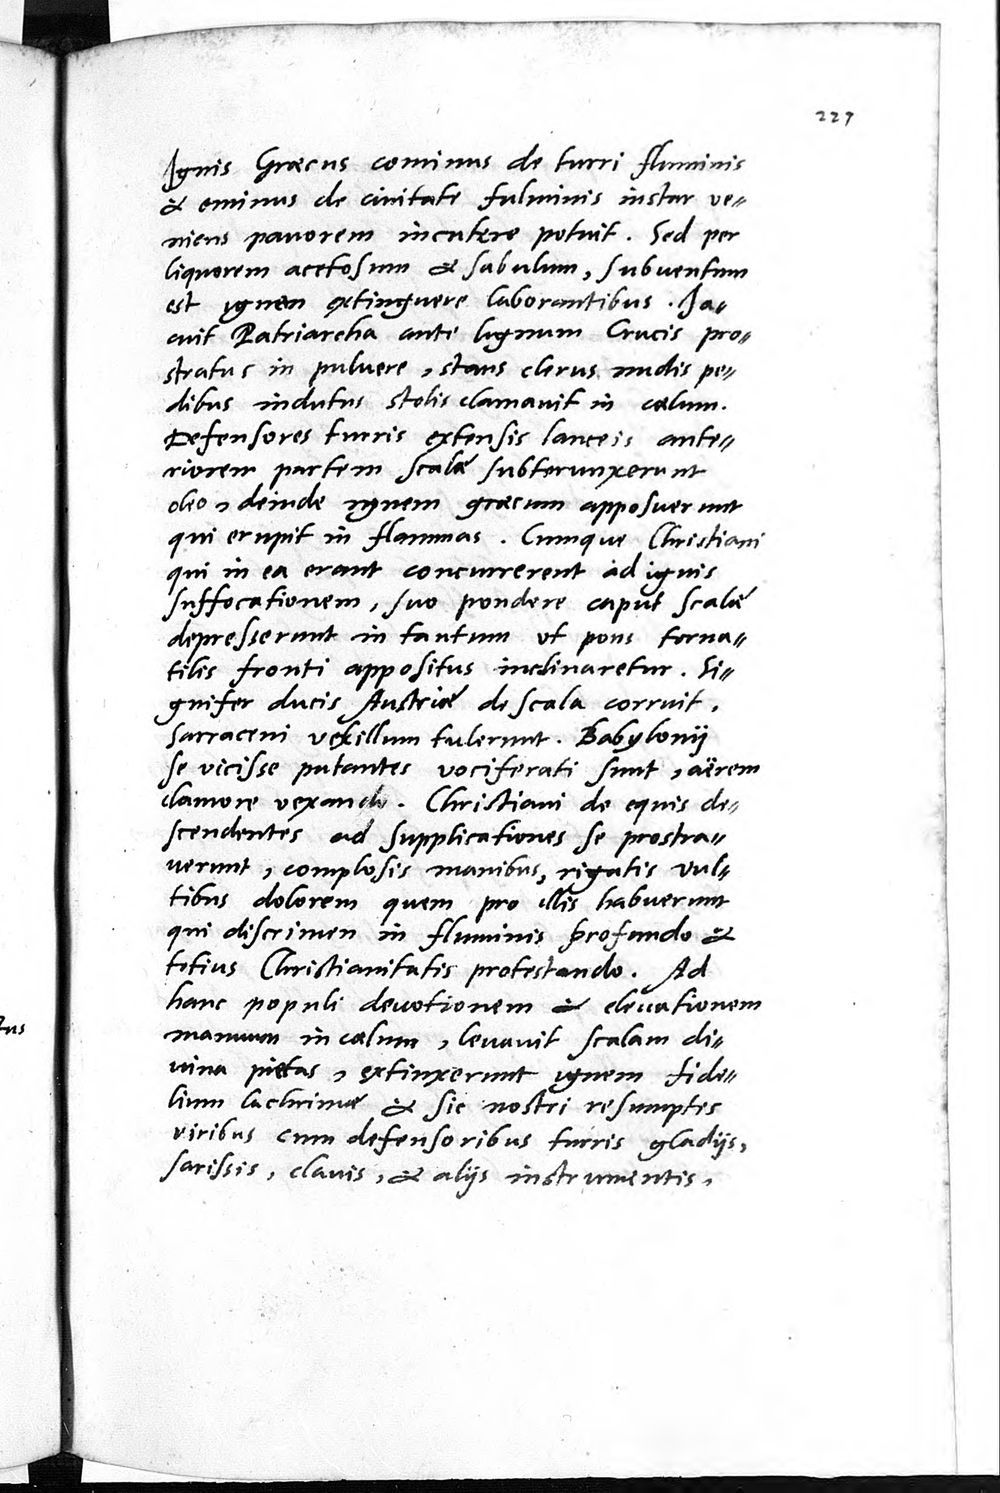 227
Ignis Græcus cominus de turri fluminis
& eminus de ciuitate fulminis instar ve=
niens pauorem incutere potuit. Sed per
liquorem acetosum & sabulum, subuentum
est ignem extinguere laborantibus. Ja=
cuit Patriarcha ante lignum Crucis pro=
stratus in puluere, stans clerus nudis pe=
dibus indutus stolis clamauit in cœlum.
Defensores turris extensis lanceis ante=
riorem partem scalæ subterunxerunt
oleo, deinde ignem græcum apposuerunt
qui erupit in flammas. Cumque Christiani
qui in ea erant concurrerent ad ignis
suffocationem, suo pondere caput scalæ
depresserunt in tantum vt pons torna=
tilis fronti appositus inclinaretur. Si=
gnifer ducis Austriæ de scala corruit,
Sarraceni vexillum tulerunt. Babylonij
se vicisse putantes vociferati sunt, aërem
clamore vexando. Christiani de equis de=
scendentes ad supplicationes se prostra=
uerunt, complosis manibus, rigatis vul=
tibus dolorem quem pro illis habuerunt
qui discrimen in fluminis profundo &
totius Christianitatis protestando. Ad
hanc populi deuotionem & eleuationem
manuum in cœlum, leuauit scalam di=
uina pietas, extinxerunt ignem fide=
lium lachrimæ & sic nostri resumptis
viribus cum defensoribus turris gladijs,
sarissis, clauis, & alijs instrumentis,
tus